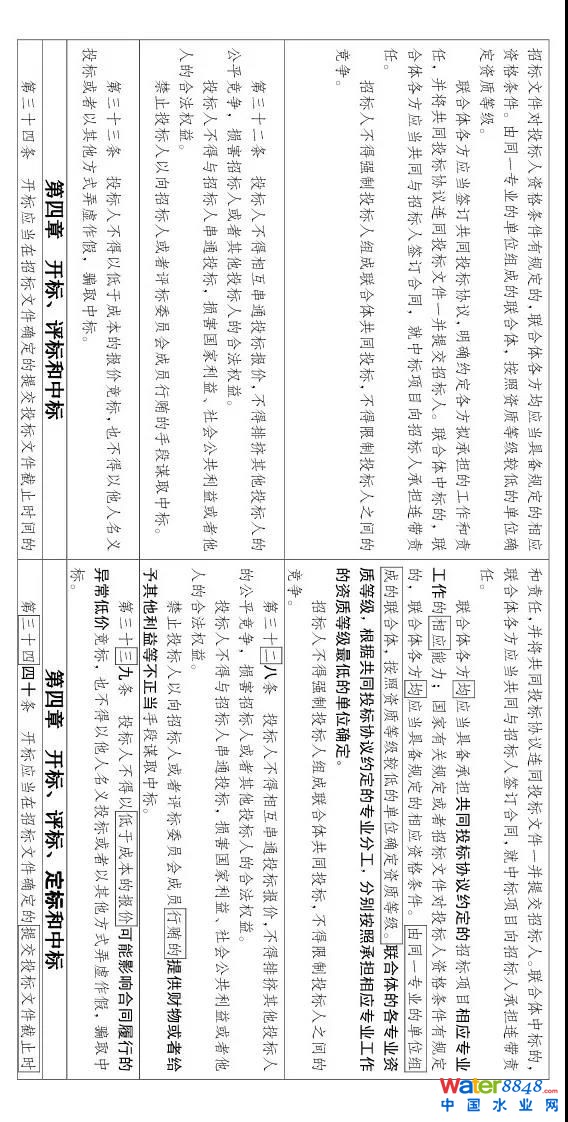 招标文件对投标人资格条件有规定的，联合体各方均应当具备规定的相应
资格条件。由同一专业的单位组成的联合体，按照资质等级较低的单位确
定资质等级。
联合体各方应当签订共同投标协议，明确约定各方拟承担的工作和责
任，并将共同投标协议连同投标文件一并提交招标人。联合体中标的，联
合体各方应当共同与招标人签订合同，就中标项目向招标人承担连带责
任。
招标人不得强制投标人组成联合体共同投标，不得限制投标人之间的
竞争。
和责任，并将共同投标协议连同投标文件一并提交招标人。联合体中标的，
联合体各方应当共同与招标人签订合同，就中标项目向招标人承担连带责
任。
联合体各方均应当具备承担共同投标协议约定的招标项目相应专业
工作的相应能力；国家有关规定或者招标文件对投标人资格条件有规定
的，联合体各方均应当具备规定的相应资格条件。由同一专业的单位组
成的联合体，按照资质等级较低的单位确定资质等级。联合体的各专业资
质等级，根据共同投标协议约定的专业分工，分别按照承担相应专业工作
的资质等级最低的单位确定。
招标人不得强制投标人组成联合体共同投标，不得限制投标人之间的
竞争。
第三十二条　投标人不得相互串通投标报价，不得排挤其他投标人的
公平竞争，损害招标人或者其他投标人的合法权益。
投标人不得与招标人串通投标，损害国家利益、社会公共利益或者他
人的合法权益。
禁止投标人以向招标人或者评标委员会成员行贿的手段谋取中标。
第三十二八条　投标人不得相互串通投标报价，不得排挤其他投标人
的公平竞争，损害招标人或者其他投标人的合法权益。
投标人不得与招标人串通投标，损害国家利益、社会公共利益或者他
人的合法权益。
禁止投标人以向招标人或者评标委员会成员行贿的提供财物或者给
予其他利益等不正当手段谋取中标。
第三十三条　投标人不得以低于成本的报价竞标，也不得以他人名义
投标或者以其他方式弄虚作假，骗取中标。
第三十三九条　投标人不得以低于成本的报价可能影响合同履行的
异常低价竞标，也不得以他人名义投标或者以其他方式弄虚作假，骗取中
标。
第四章　开标、评标和中标
第四章　开标、评标、定标和中标
第三十四条　开标应当在招标文件确定的提交投标文件截止时间的
第三十四四十条　开标应当在招标文件确定的提交投标文件截止时
Water8848.com
中国水业网